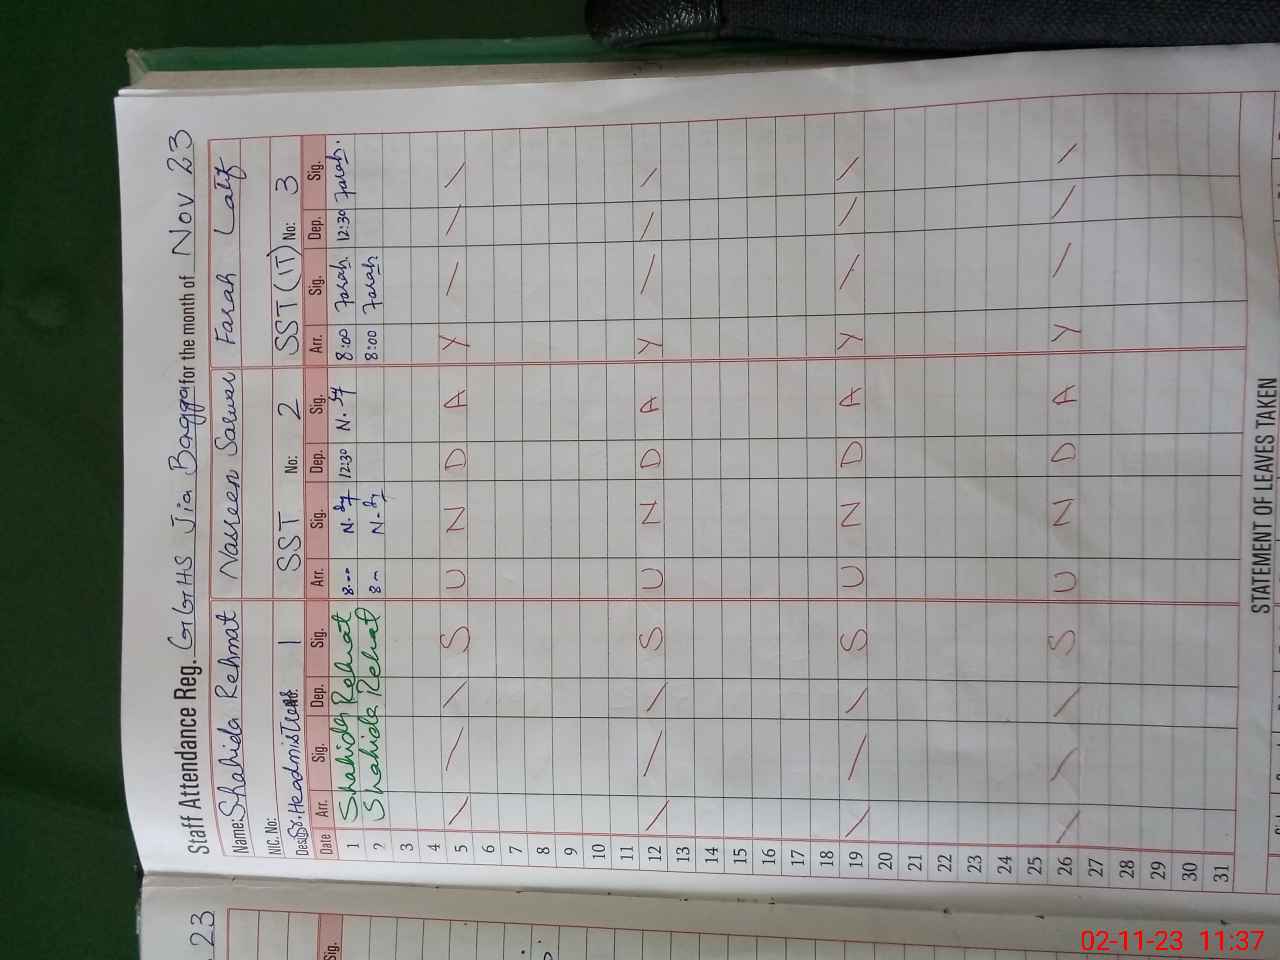 Staff Attendance Reg. GGHS Jia Bagga for the month of Nov 23
Name: Shahida Rehmat Nasreen Sarwar Farah Latif
NIC. No:
Desig: Sr. Headmistress 1 SST No: 2 SST (IT) No: 3
Date Arr. Sig. Dep. Sig. Arr. Sig. Dep. Sig. Arr. Sig. Dep. Sig.
1 Shahida Rehmat 8:00 12:30 8:00 Farah. 12:30 Farah.
2 Shahida Rehmat 8:00 Farah
3
4
5 S U N D A Y
6
7
8
9
10
11
12 S U N D A Y
13
14
15
16
17
18
19 S U N D A Y
20
21
22
23
24
25
26 S U N D A Y
27
28
29
30
31
STATEMENT OF LEAVES TAKEN
23
Sig.
02-11-23 11:37